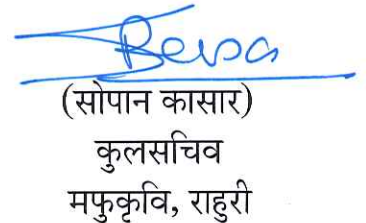 (सोपान कासार)
कुलसचिव
मफुकृवि, राहुरी